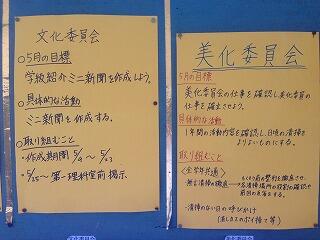 文化委員会
○5月の目標
学級紹介ミニ新聞を作成しよう。
○具体的な活動
ミニ新聞を作成する。
○取り組むこと
・作成期間 5/9 ~ 5/23
・5/25~ 第一理科室前掲示
美化委員会
5月の目標
美化委員会の仕事を確認し美化委員の
仕事を確立させよう。
具体的な活動
1年間の活動内容を確認し、日頃の清掃を
よりよいものにする。
取り組むこと
<全学年共通>
・無言清掃の徹底
・清掃のない日の呼びかけ